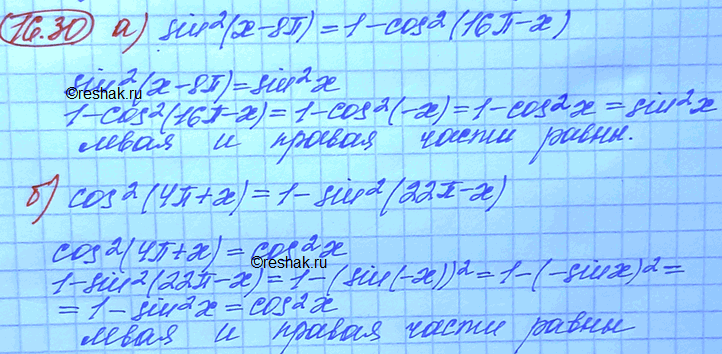 16.30 а) sin²(x-8π)=1-cos²(16π-x)
sin²(x-8π)=sin²x
©reshak.ru
1-cos²(16π-x)=1-cos²(-x)=1-cos²x=sin²x
левая и правая части равны.
б) cos²(4π+x)=1-sin²(22π-x)
cos²(4π+x)=cos²x
©reshak.ru
1-sin²(22π-x)=1-(sin(-x))²=1-(-sinx)²=
=1-sin²x=cos²x
левая и правая части равны